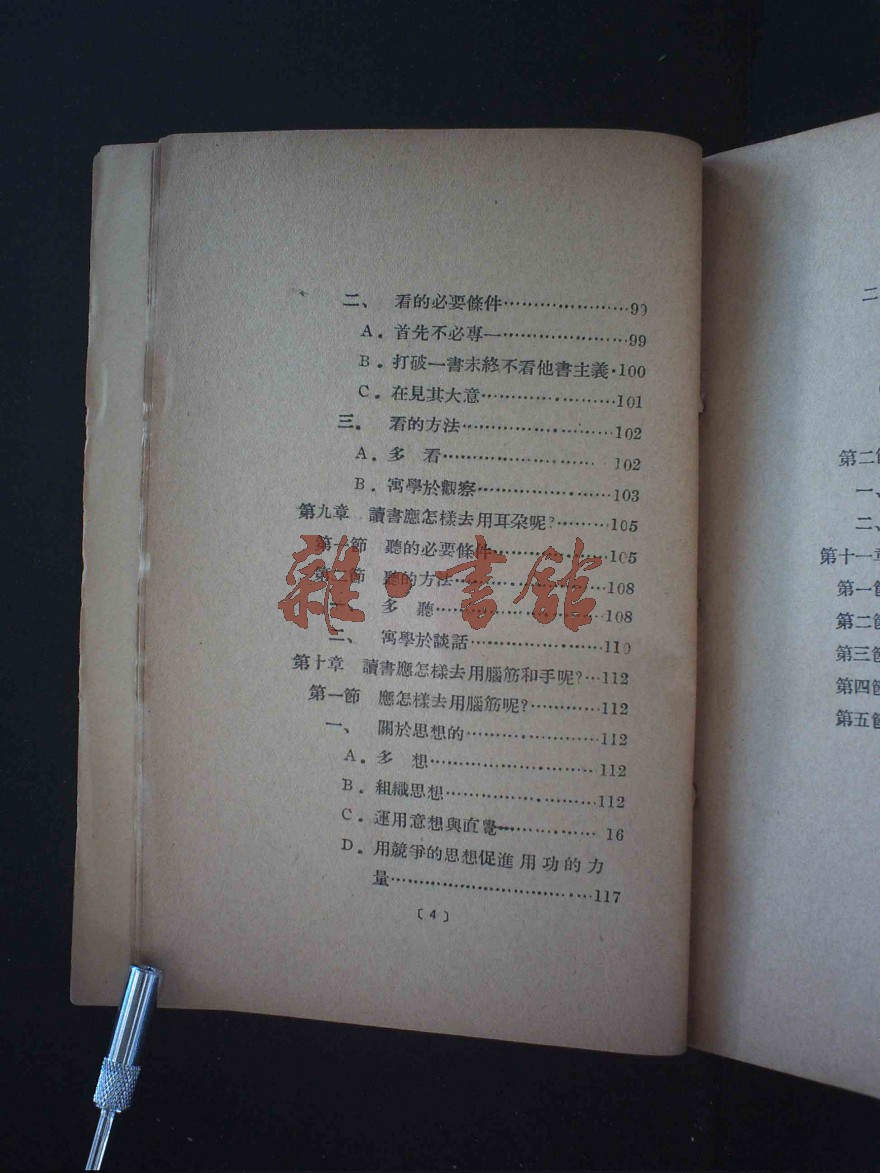 二、 看的必要條件…………………99
A．首先不必專一…………………99
B．打破一書未終不看他書主義·100
C．在見其大意…………………101
三． 看的方法……………………102
A．多 看…………………… 102
B．寓學於觀察…………………103
第九章 讀書應怎樣去用耳朶呢？………105
第一節 聽的必要條件………………105
第二節 聽的方法……………………108
多 聽………………………108
二、 寓學於談話…………………110
第十章 讀書應怎樣去用腦筋和手呢？…112
第一節 應怎樣去用腦筋呢？…………112
一、 關於思想的…………………112
A．多 想……………………… 112
B．組織思想……………………112
C．運用意想與直覺…………… 16
D．用競爭的思想促進用功的力
量……………………………117
〔4〕
雜·書館
二
第二
一、
二、
第十一章
第一
第二
第三
第四
第五